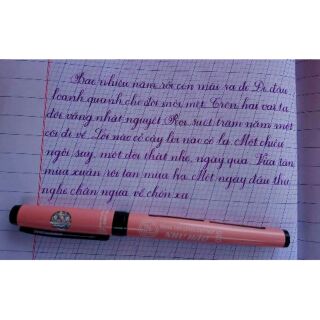 Bao nhiêu năm rồi còn mãi ra đi Đi đâu
loanh quanh cho đời mỏi mệt Trên hai vai ta
đôi vầng nhật nguyệt Rọi suốt trăm năm một
cõi đi về. Lời nào của cây lời nào cỏ lạ. Một chiều
ngồi say, một đời thật nhẹ, ngày qua. Vừa tàn
mùa xuân rồi tàn mùa hạ. Một ngày đầu thu
nghe chân ngựa về chốn xa